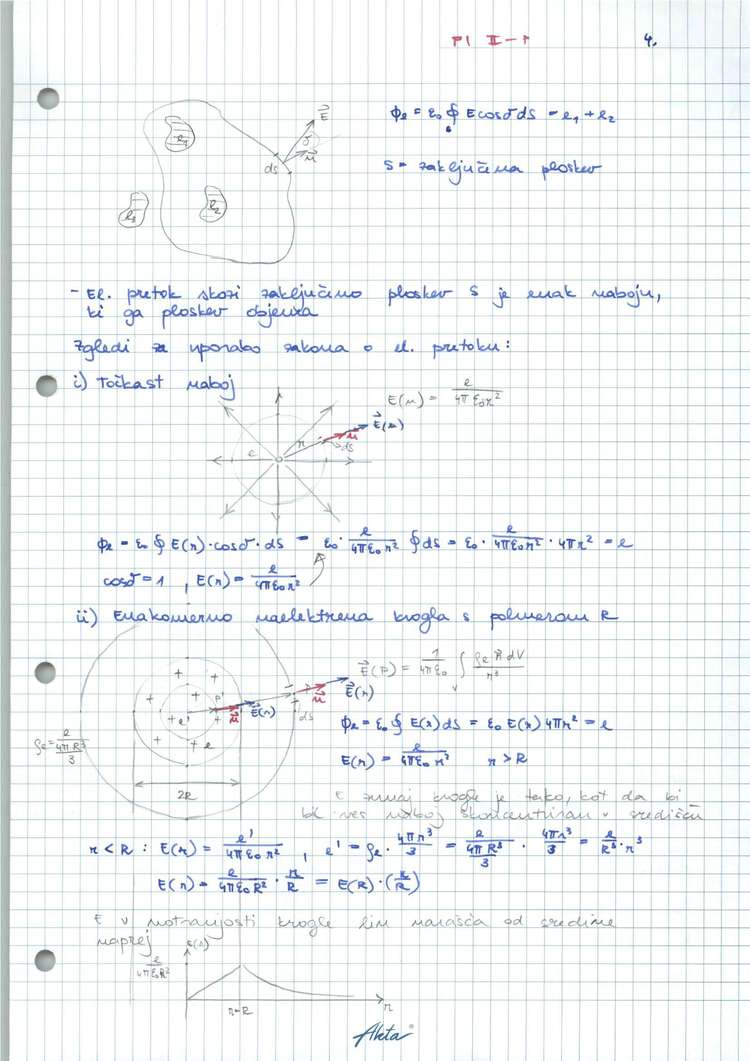 PI II-1 4.
E⃗
e₁ δ
n⃗
dS
e₃ e₂
Φe = ε₀ ∮ E cosδ dS = e₁ + e₂
S
S = zaključena ploskev
- El. pretok skozi zaključeno ploskev S je enak naboju,
ki ga ploskev objema
Zgledi za uporabo zakona o el. pretoku:
i) Točkast naboj
E(r) = e / 4πε₀r²
E⃗(r)
n⃗
r dS
e
Φe = ε₀ ∮ E(r)·cosδ·dS = ε₀ · e / 4πε₀r² ∮ dS = ε₀ · e / 4πε₀r² · 4πr² = e
cosδ = 1 , E(r) = e / 4πε₀r²
ii) Enakomerno naelektrena krogla s polmerom R
E⃗(r) = 1 / 4πε₀ ∫ ρe r⃗ dV / r³
V
E⃗(r)
n⃗
dS
n⃗ E⃗(r)
e' e
ρe = e / (4πR³ / 3)
2R
Φe = ε₀ ∮ E(r) dS = ε₀ E(r) 4πr² = e
E(r) = e / 4πε₀r² r > R
E zunaj krogle je tako, kot da bi
bil ves naboj skoncentriran v središču
r < R : E(r) = e' / 4πε₀r² , e' = ρe · 4πr³ / 3 = e / (4πR³ / 3) · 4πr³ / 3 = e / R³ · r³
E(r) = e / 4πε₀R² · r / R = E(R)·(r / R)
E v notranjosti krogle lin narašča od sredine
naprej
E(r)
e / 4πε₀R²
r=R r
Akta